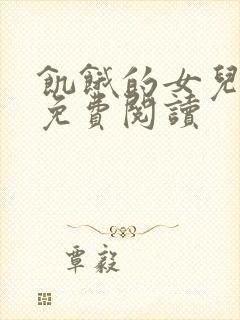 飢餓的女兒
免費閱讀
覃毅